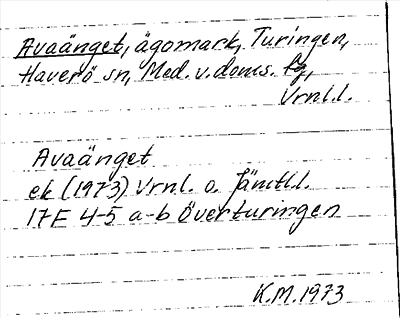 Avaänget, ägomark, Turingen,
Haverö sn, Med. v. doms. tg,
Vrnl.l.
Avaänget
ek (1973) Vrnl. o. Jämtl.l.
17E 4-5 a-b Överturingen
K.M. 1973